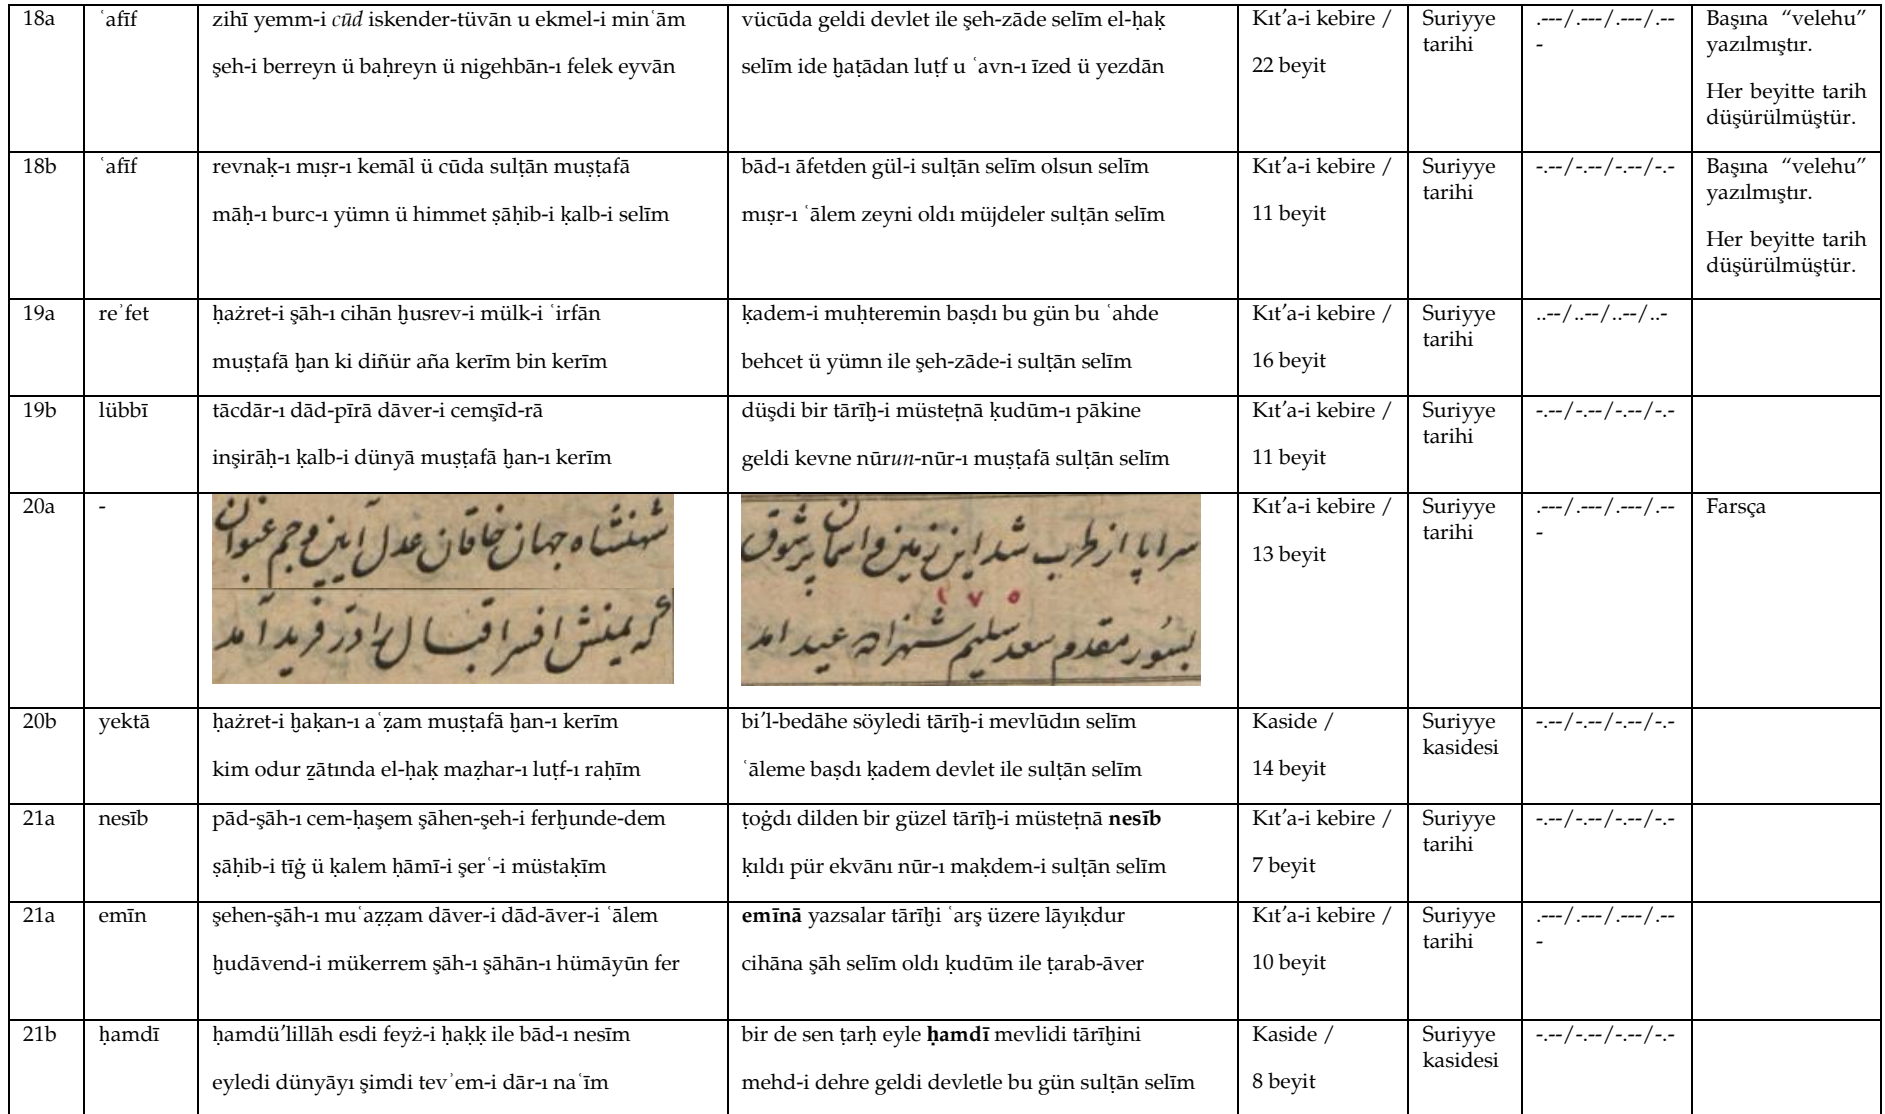 18a
ʿafīf
zihī yemm-i cūd iskender-tüvān u ekmel-i minʿām
şeh-i berreyn ü baḥreyn ü nigehbān-ı felek eyvān
vücūda geldi devlet ile şeh-zāde selīm el-ḥaḳ
selīm ide ḫaṭādan luṭf u ʿavn-ı īzed ü yezdān
Kıt'a-i kebire /
22 beyit
Suriyye
tarihi
.---/.---/.---/.--
-
Başına “velehu”
yazılmıştır.
Her beyitte tarih
düşürülmüştür.
18b
ʿafīf
revnaḳ-ı mıṣr-ı kemāl ü cūda sulṭān muṣṭafā
māḥ-ı burc-ı yümn ü himmet ṣāḥib-i ḳalb-i selīm
bād-ı āfetden gül-i sulṭān selīm olsun selīm
mıṣr-ı ʿālem zeyni oldı müjdeler sulṭān selīm
Kıt'a-i kebire /
11 beyit
Suriyye
tarihi
-.--/-.--/-.--/-.-
Başına “velehu”
yazılmıştır.
Her beyitte tarih
düşürülmüştür.
19a
reʾfet
ḥażret-i şāh-ı cihān ḫusrev-i mülk-i ʿirfān
muṣṭafā ḫan ki diñür aña kerīm bin kerīm
ḳadem-i muḥteremin baṣdı bu gün bu ʿahde
behcet ü yümn ile şeh-zāde-i sulṭān selīm
Kıt'a-i kebire /
16 beyit
Suriyye
tarihi
..--/..--/..--/..-
19b
lübbī
tācdār-ı dād-pīrā dāver-i cemşīd-rā
inşirāḥ-ı ḳalb-i dünyā muṣṭafā ḫan-ı kerīm
düşdi bir tārīḫ-i müsteṭnā ḳudūm-ı pākine
geldi kevne nūrun-nūr-ı muṣṭafā sulṭān selīm
Kıt'a-i kebire /
11 beyit
Suriyye
tarihi
-.--/-.--/-.--/-.-
20a
-
شهنشاه جهان خاقان عدل آیین و جم عنوان
که یمنش افسر اقبال را در فرید آمد
سراپا از طرب شد این زمین و اسمان پرشوق
١٧٥
بسور مقدم سعد سلیم شهزاده عید امد
Kıt'a-i kebire /
13 beyit
Suriyye
tarihi
.---/.---/.---/.--
-
Farsça
20b
yektā
ḥażret-i ḫaḳan-ı aʿẓam muṣṭafā ḫan-ı kerīm
kim odur ẕātında el-ḥaḳ maẓhar-ı luṭf-ı raḥīm
bi’l-bedāhe söyledi tārīḫ-i mevlūdın selīm
ʿāleme baṣdı ḳadem devlet ile sulṭān selīm
Kaside /
14 beyit
Suriyye
kasidesi
-.--/-.--/-.--/-.-
21a
nesīb
pād-şāh-ı cem-ḥaşem şāhen-şeh-i ferḫunde-dem
ṣāḥib-i tīġ ü ḳalem ḥāmī-i şerʿ-i müstaḳīm
ṭoġdı dilden bir güzel tārīḫ-i müsteṭnā nesīb
ḳıldı pür ekvānı nūr-ı maḳdem-i sulṭān selīm
Kıt'a-i kebire /
7 beyit
Suriyye
tarihi
-.--/-.--/-.--/-.-
21a
emīn
şehen-şāh-ı muʿaẓẓam dāver-i dād-āver-i ʿālem
ḫudāvend-i mükerrem şāh-ı şāhān-ı hümāyūn fer
emīnā yazsalar tārīḫi ʿarş üzere lāyıḳdur
cihāna şāh selīm oldı ḳudūm ile ṭarab-āver
Kıt'a-i kebire /
10 beyit
Suriyye
tarihi
.---/.---/.---/.--
-
21b
ḥamdī
ḥamdü’lillāh esdi feyż-i ḥaḳḳ ile bād-ı nesīm
eyledi dünyāyı şimdi tevʾem-i dār-ı naʿīm
bir de sen ṭarḥ eyle ḥamdī mevlidi tārīḫini
mehd-i dehre geldi devletle bu gün sulṭān selīm
Kaside /
8 beyit
Suriyye
kasidesi
-.--/-.--/-.--/-.-